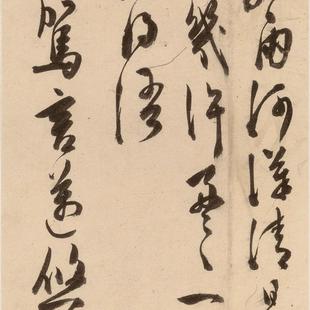 雨河漢清且
幾許盈〻一
得語
駕言邁悠